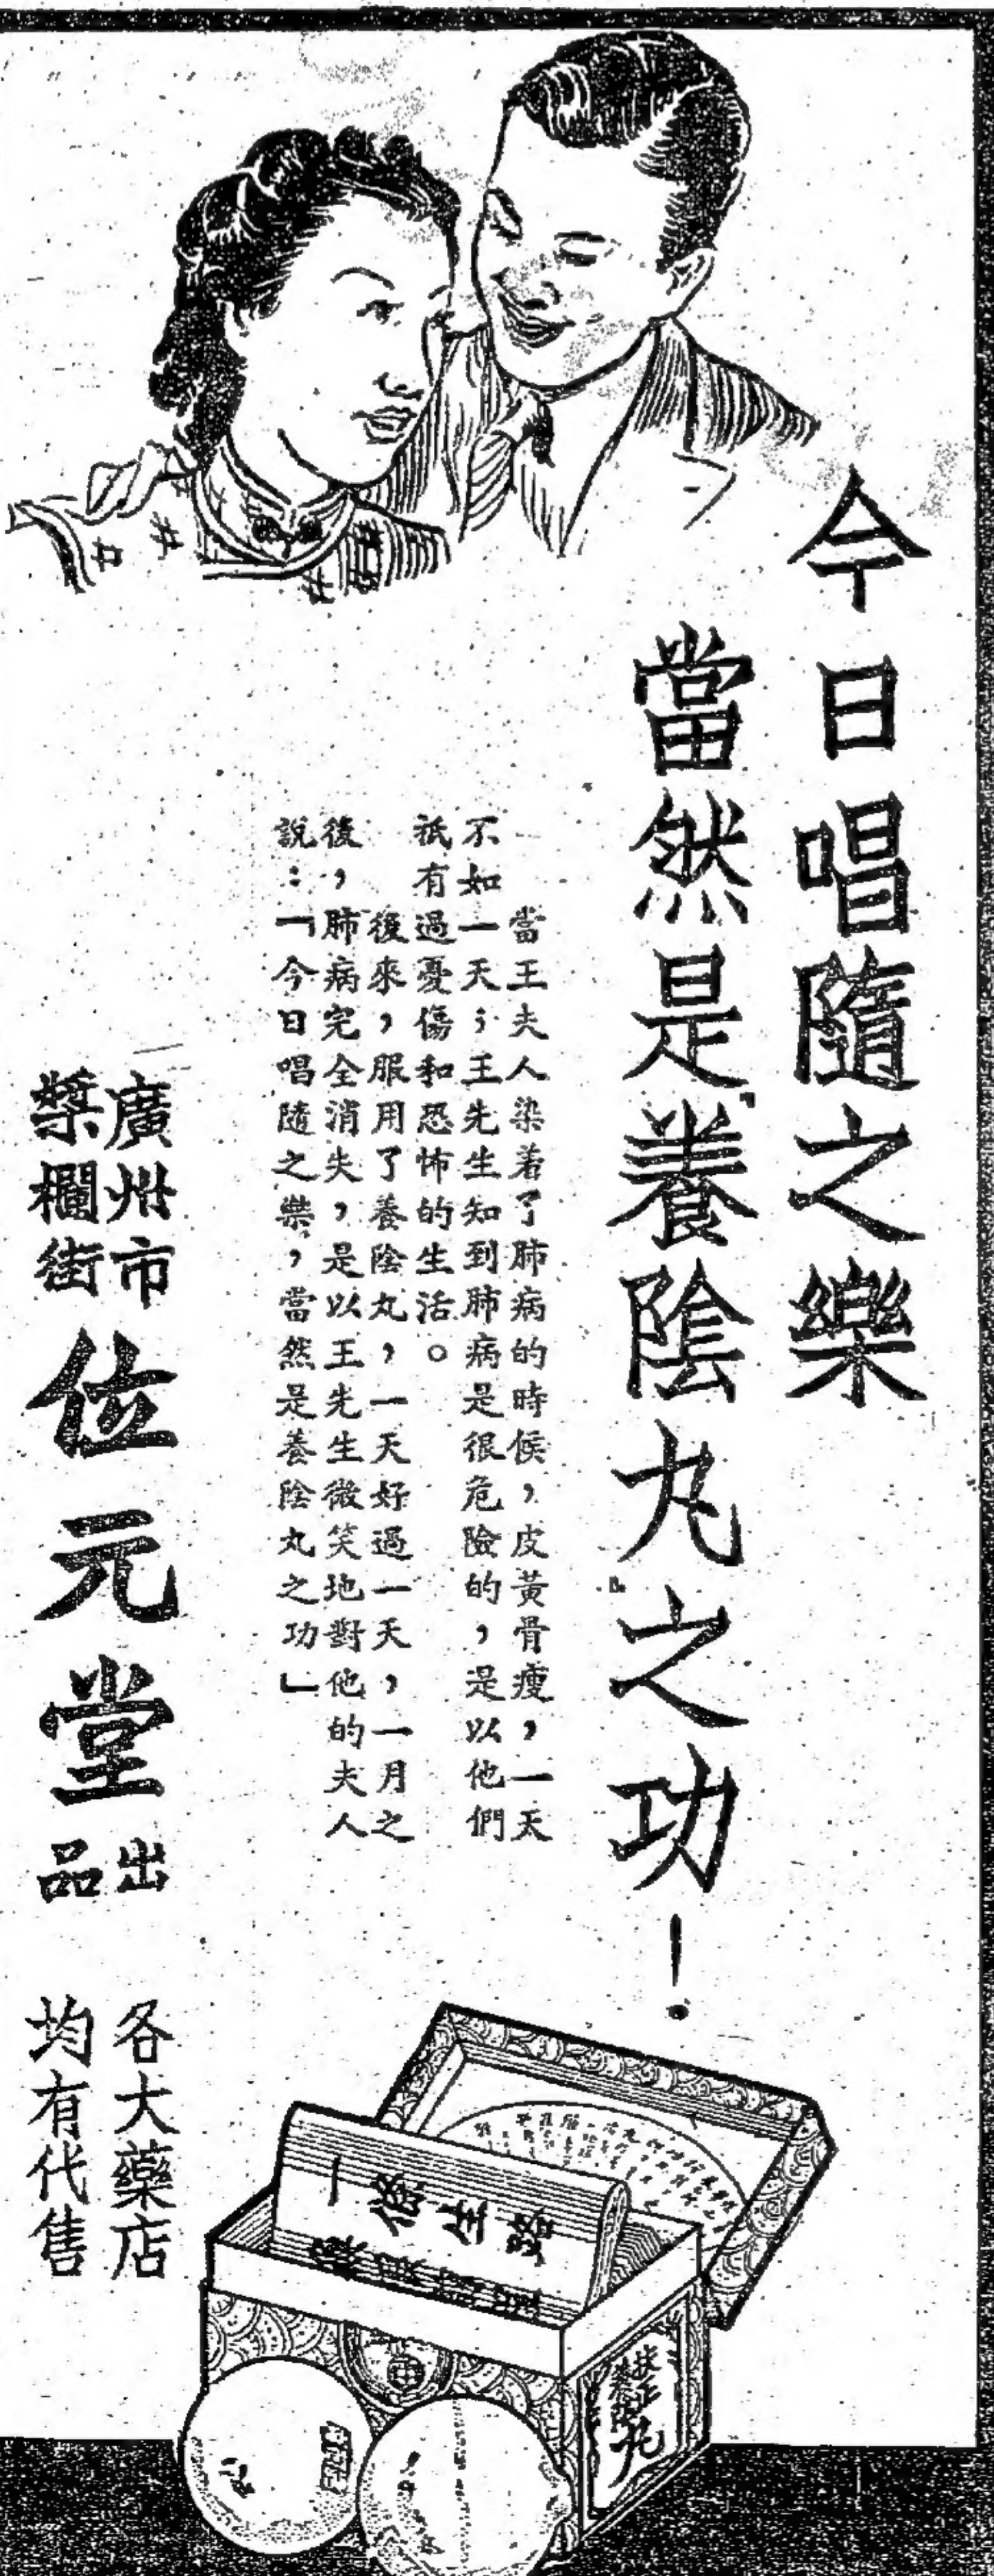 今日唱隨之樂
當然是養陰丸之功！
當王夫人染着了肺病的時候，皮黃骨瘦，一天
不如一天；王先生知到肺病是很危險的，是以他們
祇有過憂傷和恐怖的生活。
後來，服用了養陰丸，一天好過一天，一月之
後，肺病完全消失，是以王先生微笑地對他的夫人
說：「今日唱隨之樂，當然是養陰丸之功」
廣州市
槳欄街
位元堂
出品
各大藥店
均有代售
扶正
養陰丸